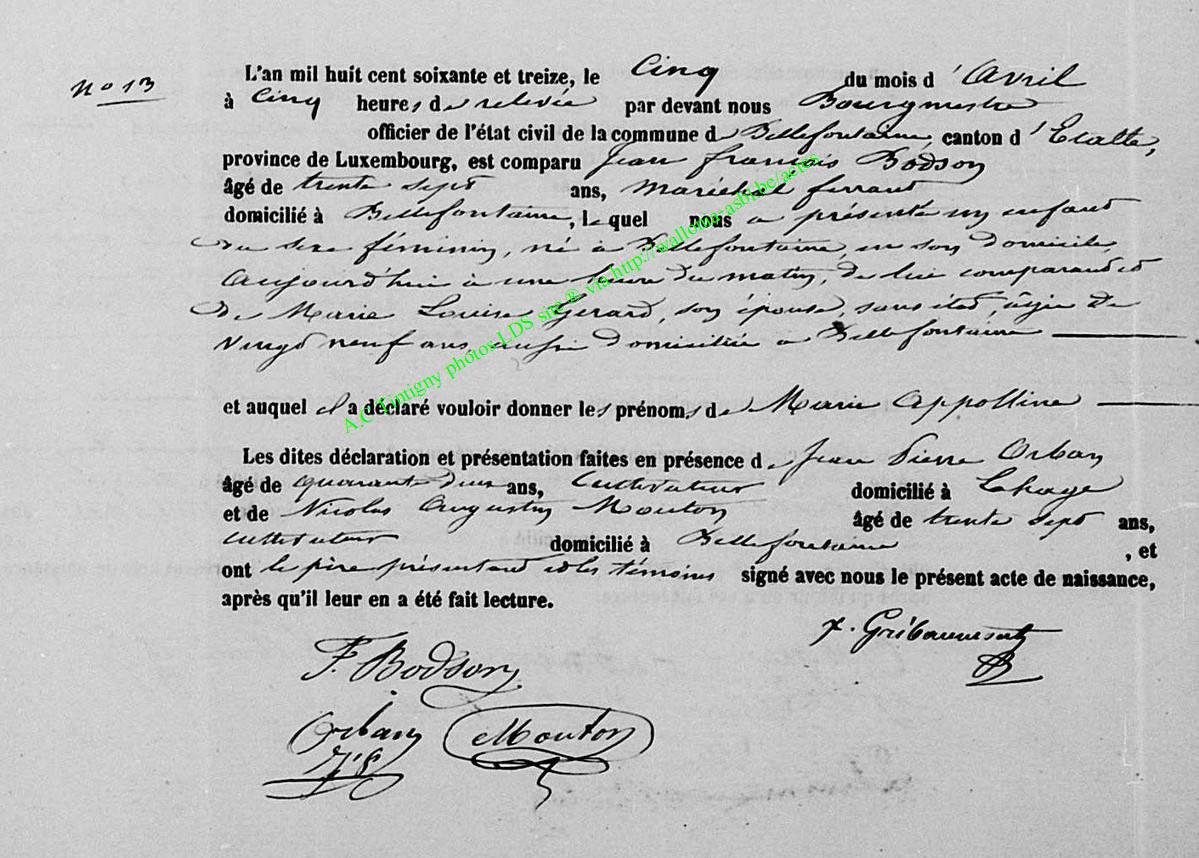 No 13
L'an mil huit cent soixante et treize, le Cinq du mois d'Avril
à Cinq heures de relevée par devant nous Bourgmestre
officier de l'état civil de la commune de Bellefontaine, canton d'Etalle,
province de Luxembourg, est comparu Jean françois Bodson
âgé de trente sept ans, Maréchal ferrant
domicilié à Bellefontaine, lequel nous a présenté un enfant
du sexe féminin, né à Bellefontaine, en son domicile
aujourd'hui à une heure du matin, de lui comparant et
de Marie Louise Gerard, son épouse, sans état, âgée de
vingt neuf ans, aussi domiciliée à Bellefontaine
et auquel il a déclaré vouloir donner les prénoms de Marie Appolline
Les dites déclaration et présentation faites en présence de Jean Pierre Orban
âgé de quarante deux ans, Cultivateur domicilié à Lahage
et de Nicolas Augustin Mouton âgé de trente sept ans,
Cultivateur domicilié à Bellefontaine, et
ont le père présentant et les témoins signé avec nous le présent acte de naissance,
après qu'il leur en a été fait lecture.
F. Bodson
Orban Mouton
J.P.
A.C. Tintigny photos LDS site® via http://wallonia-asbl.be/actes